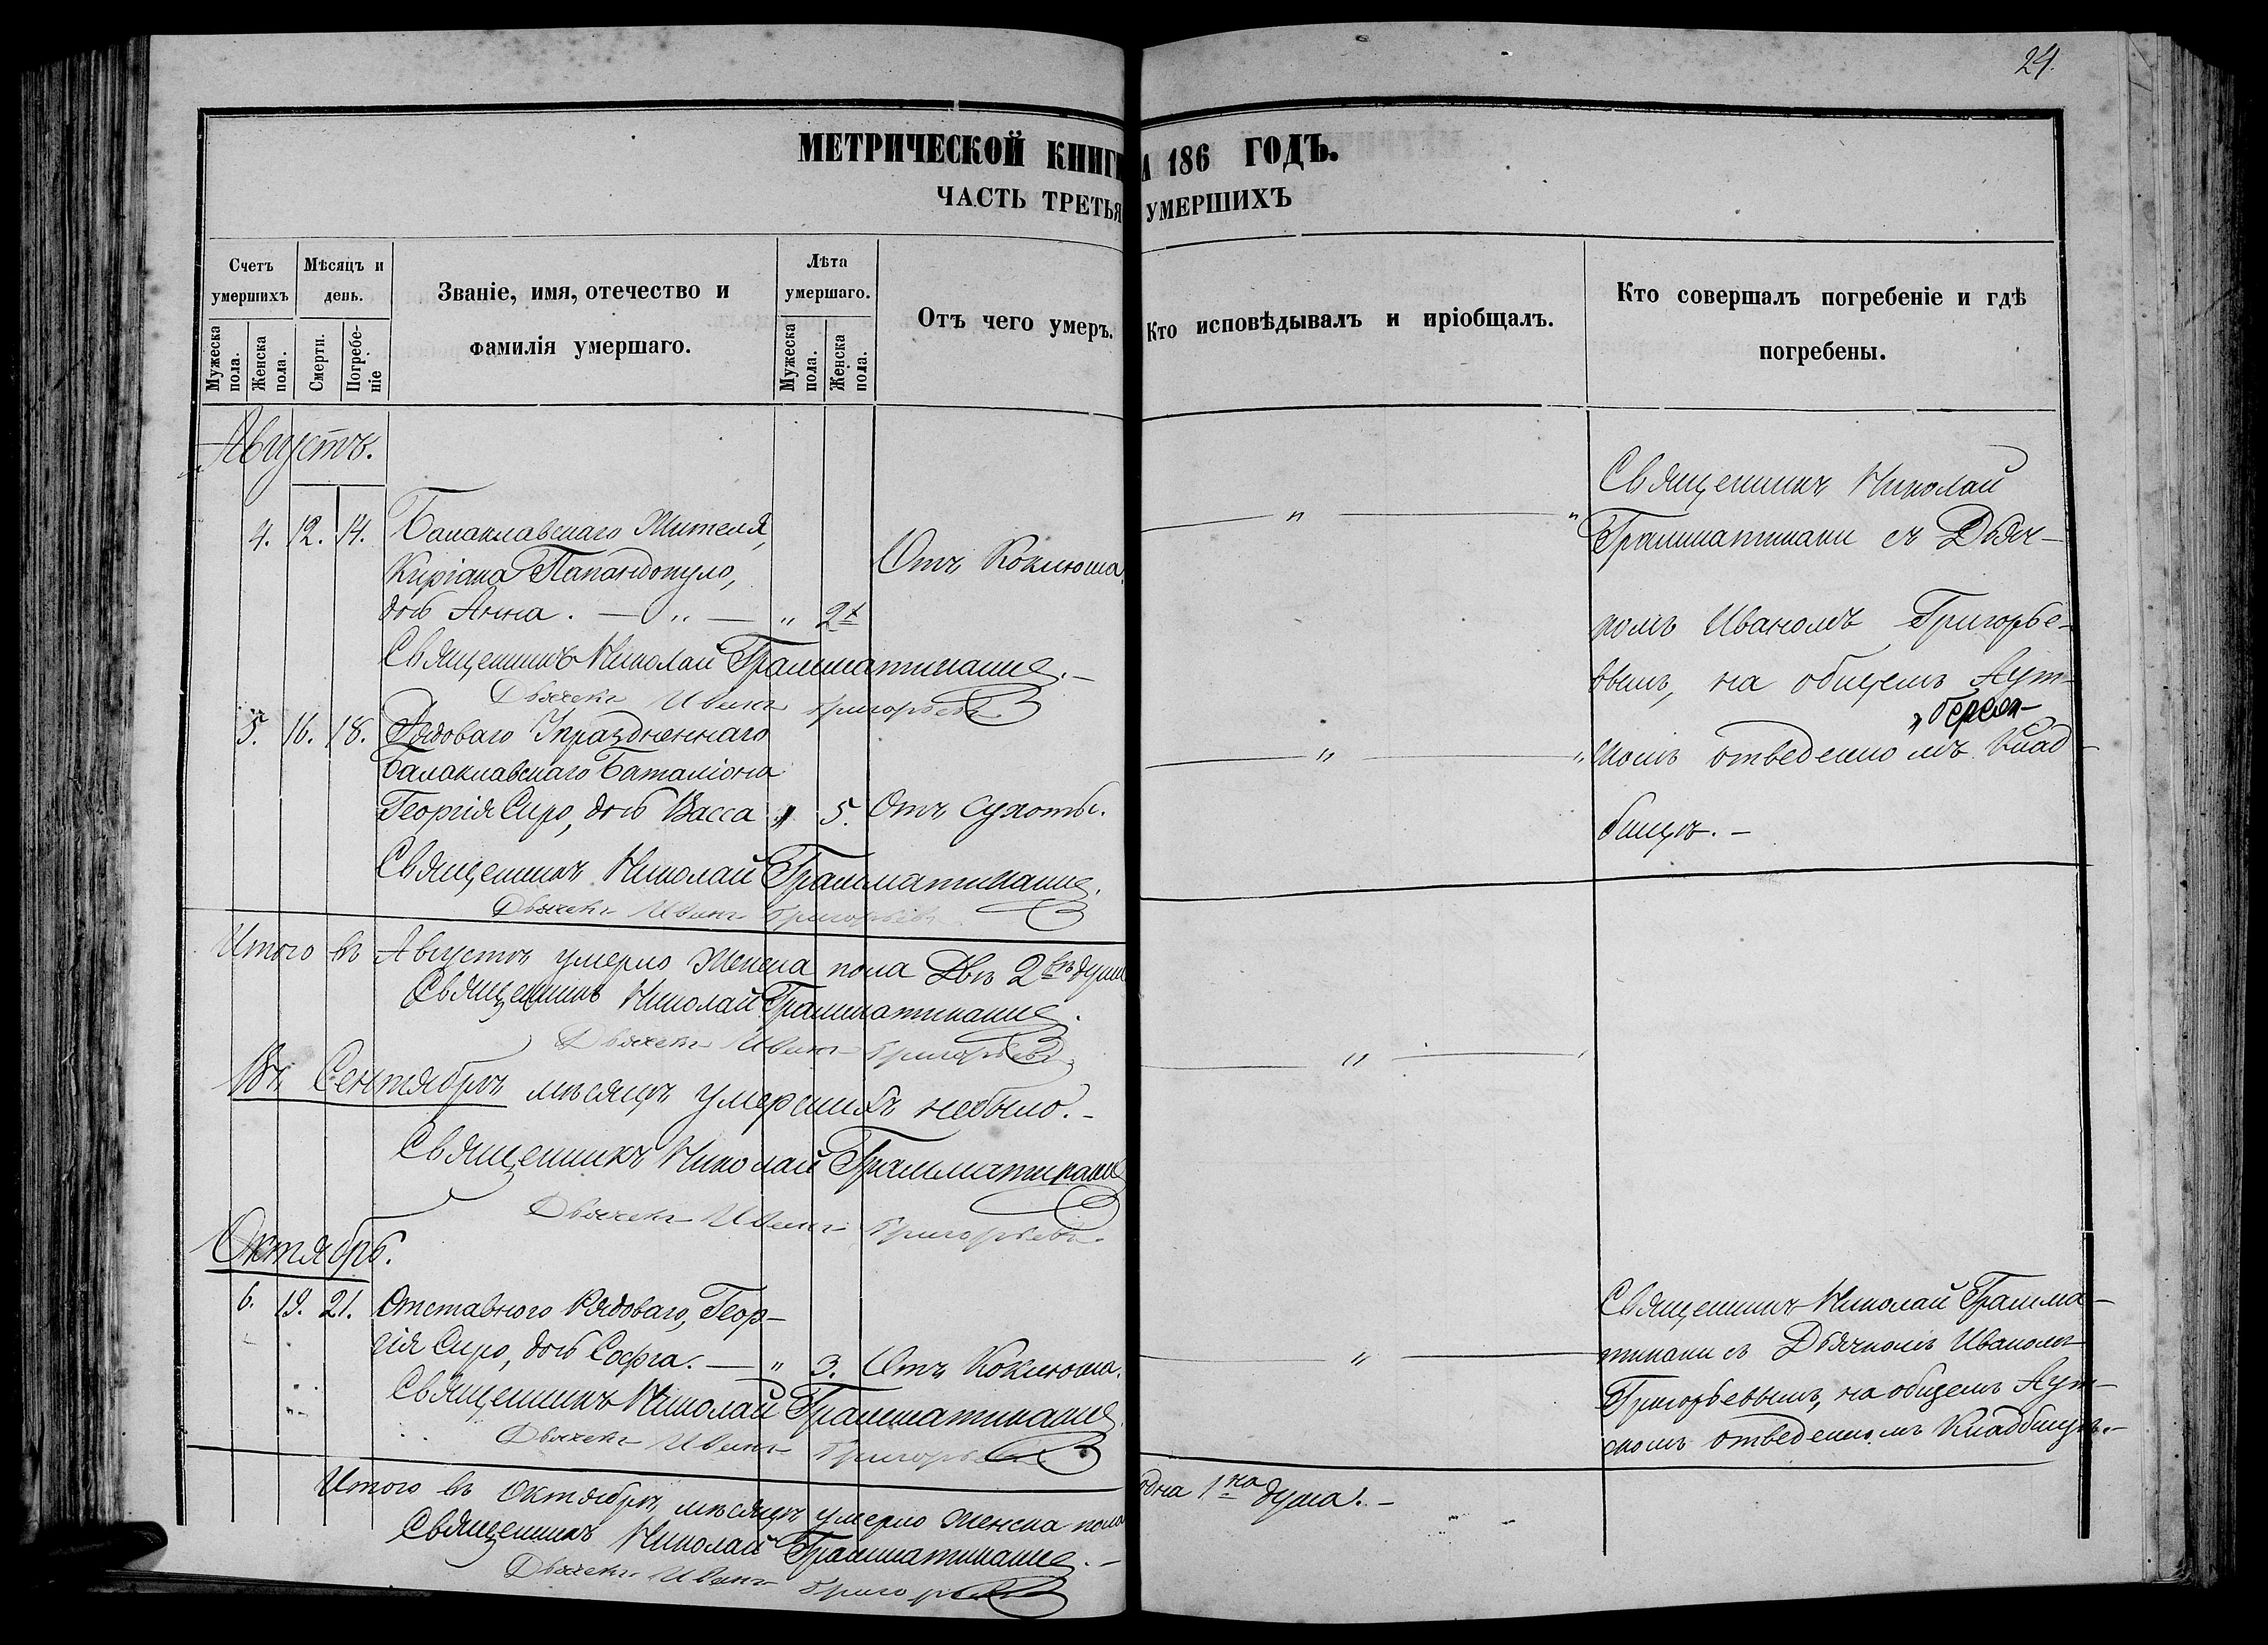 24.
МЕТРИЧЕСКОЙ КНИГИ
А 186 ГОДЪ.
ЧАСТЬ ТРЕТЬЯ
УМЕРШИХЪ
Счетъ умершихъ
Мужеска пола.
Женска пола.
Мѣсяцъ и день.
Смерти.
Погребе-ніе
Званіе, имя, отечество и
фамилія умершаго.
Лѣта умершаго.
Мужеска пола.
Женска пола.
Отъ чего умеръ.
Кто исповѣдывалъ и пріобщалъ.
Кто совершалъ погребеніе и гдѣ
погребены.
Августъ.
4. 12. 14. Балаклавскаго Жителя,
Киріака Папандопуло,
Отъ Коклюша.
дочь Анна. — „ — „ 2
Священникъ Николай Грамматикаки.
Дьячекъ Иванъ Григорьевъ
5. 16. 18. Рядоваго Упраздненнаго
Балаклавскаго Баталіона
Георгія Спиро, дочь Васса „ 5. Отъ сухоты.
Священникъ Николай Грамматикаки.
Дьячекъ Иванъ Григорьевъ
— „ — „
Священникъ Николай
Грамматикаки съ Дьяч-
комъ Иваномъ Григорье-
вымъ, на общемъ Аут-
скомъ отведенномъ Клад-
бищѣ. —
Итого въ Августѣ умерло Женска пола Двѣ 2 души
Священникъ Николай Грамматикаки.
Дьячекъ Иванъ Григорьевъ
Въ Сентябрѣ мѣсяцѣ умершихъ небыло. —
Священникъ Николай Грамматикаки
Дьячекъ Иванъ Григорьевъ.
Октябрь.
6. 19. 21. Отставнаго Рядоваго, Геор-
гія Спиро, дочь Софія. — „ 3. Отъ Коклюша.
Священникъ Николай Грамматикаки.
Дьячекъ Иванъ Григорьевъ
Священникъ Николай Грамма-
тикаки съ Дьячкомъ Иваномъ
Григорьевымъ, на общемъ Аут-
скомъ отведенномъ Кладбищѣ. —
Итого въ Октябрѣ мѣсяцѣ умерло Женска пола одна 1на душа. —
Священникъ Николай Грамматикаки. —
Дьячекъ Иванъ Григорьевъ